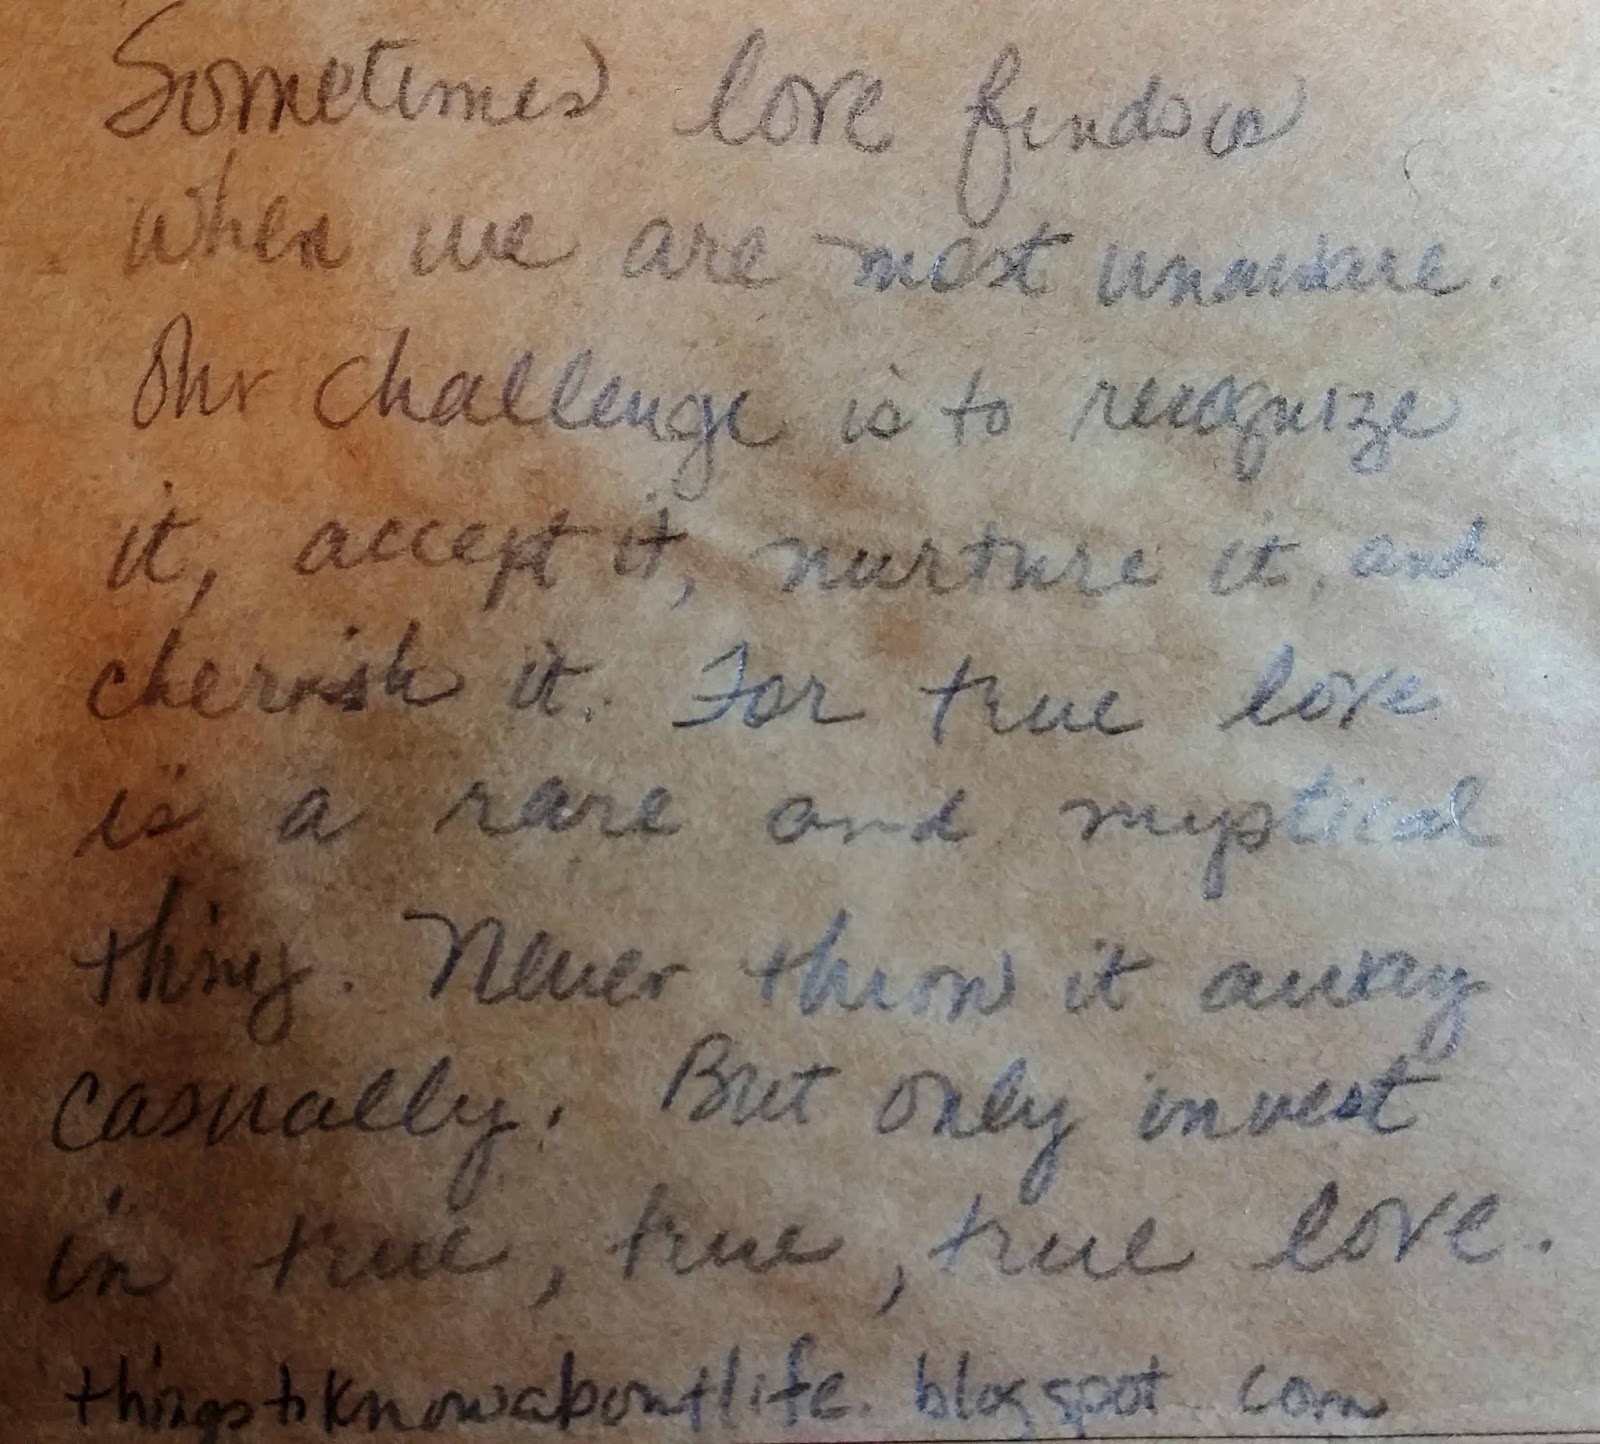 Sometimes love finds us
when we are most unaware.
Our challenge is to recognize
it, accept it, nurture it, and
cherish it. For true love
is a rare and mystical
thing. Never throw it away
casually. But only invest
in true, true, true love.
thingstoknowaboutlife.blogspot.com